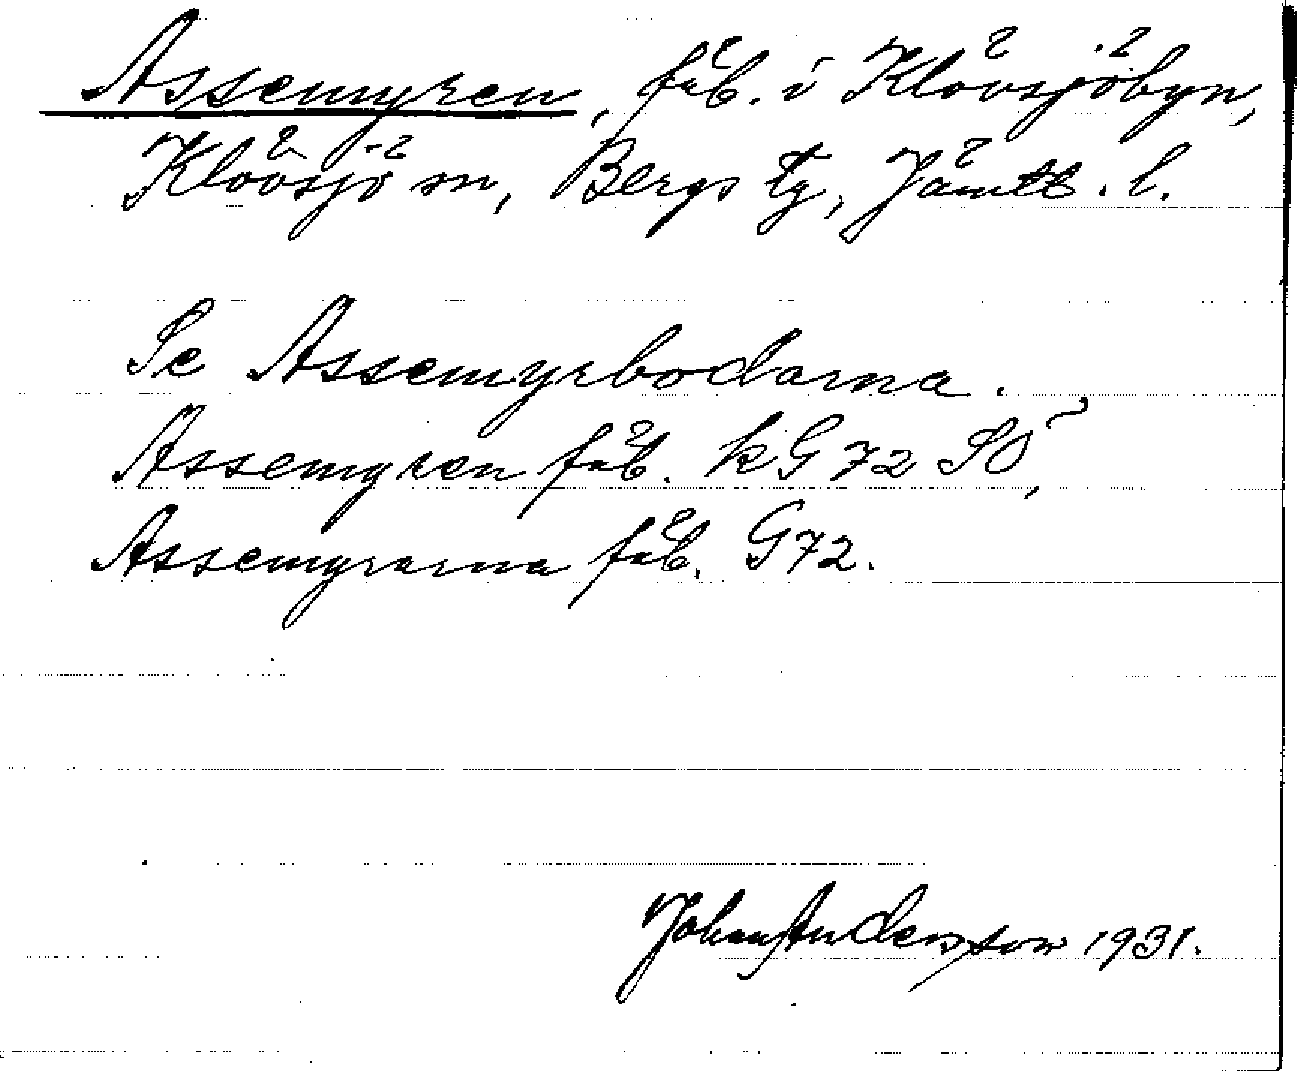 Assemyren, fäb. i Klövsjöbyn,
Klövsjö sn, Bergs tg, Jämtl. l.
Se Assemyrbodarna.
Assemyren fäb. kG72 SÖ,
Assemyrarna fäb. G72.
Johan Andersson 1931.